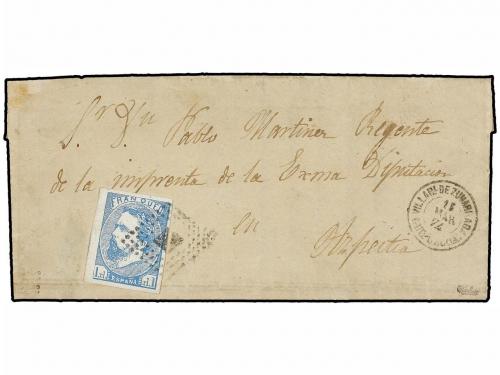 Sr. Dn. Pablo Martinez Regente
de la imprenta de la Exma Diputacion
en
Azpeitia
FRANQUEO
1 Rl. 1 Rl.
ESPAÑA
VILLARL-DE ZUMARRAGA
MAR
74